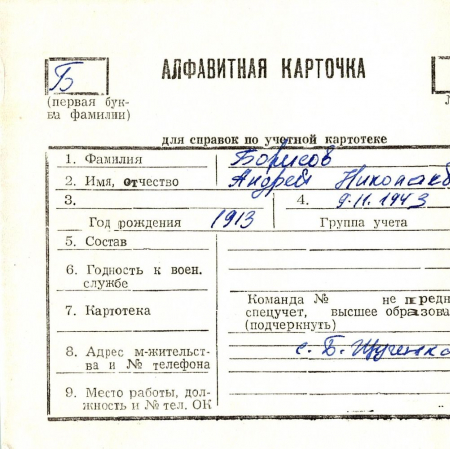 АЛФАВИТНАЯ КАРТОЧКА
Б
(первая бук-
ва фамилии)
для справок по учетной картотеке
1. Фамилия Борисов
2. Имя, отчество Андрей
3. 4. 9.11.1943
Год рождения 1913 Группа учета
5. Состав
6. Годность к воен.
службе
7. Картотека Команда № не перед
спецучет, высшее образова
(подчеркнуть)
8. Адрес м-жительст-
ва и № телефона с. Б.
9. Место работы, дол-
жность и № тел. ОК